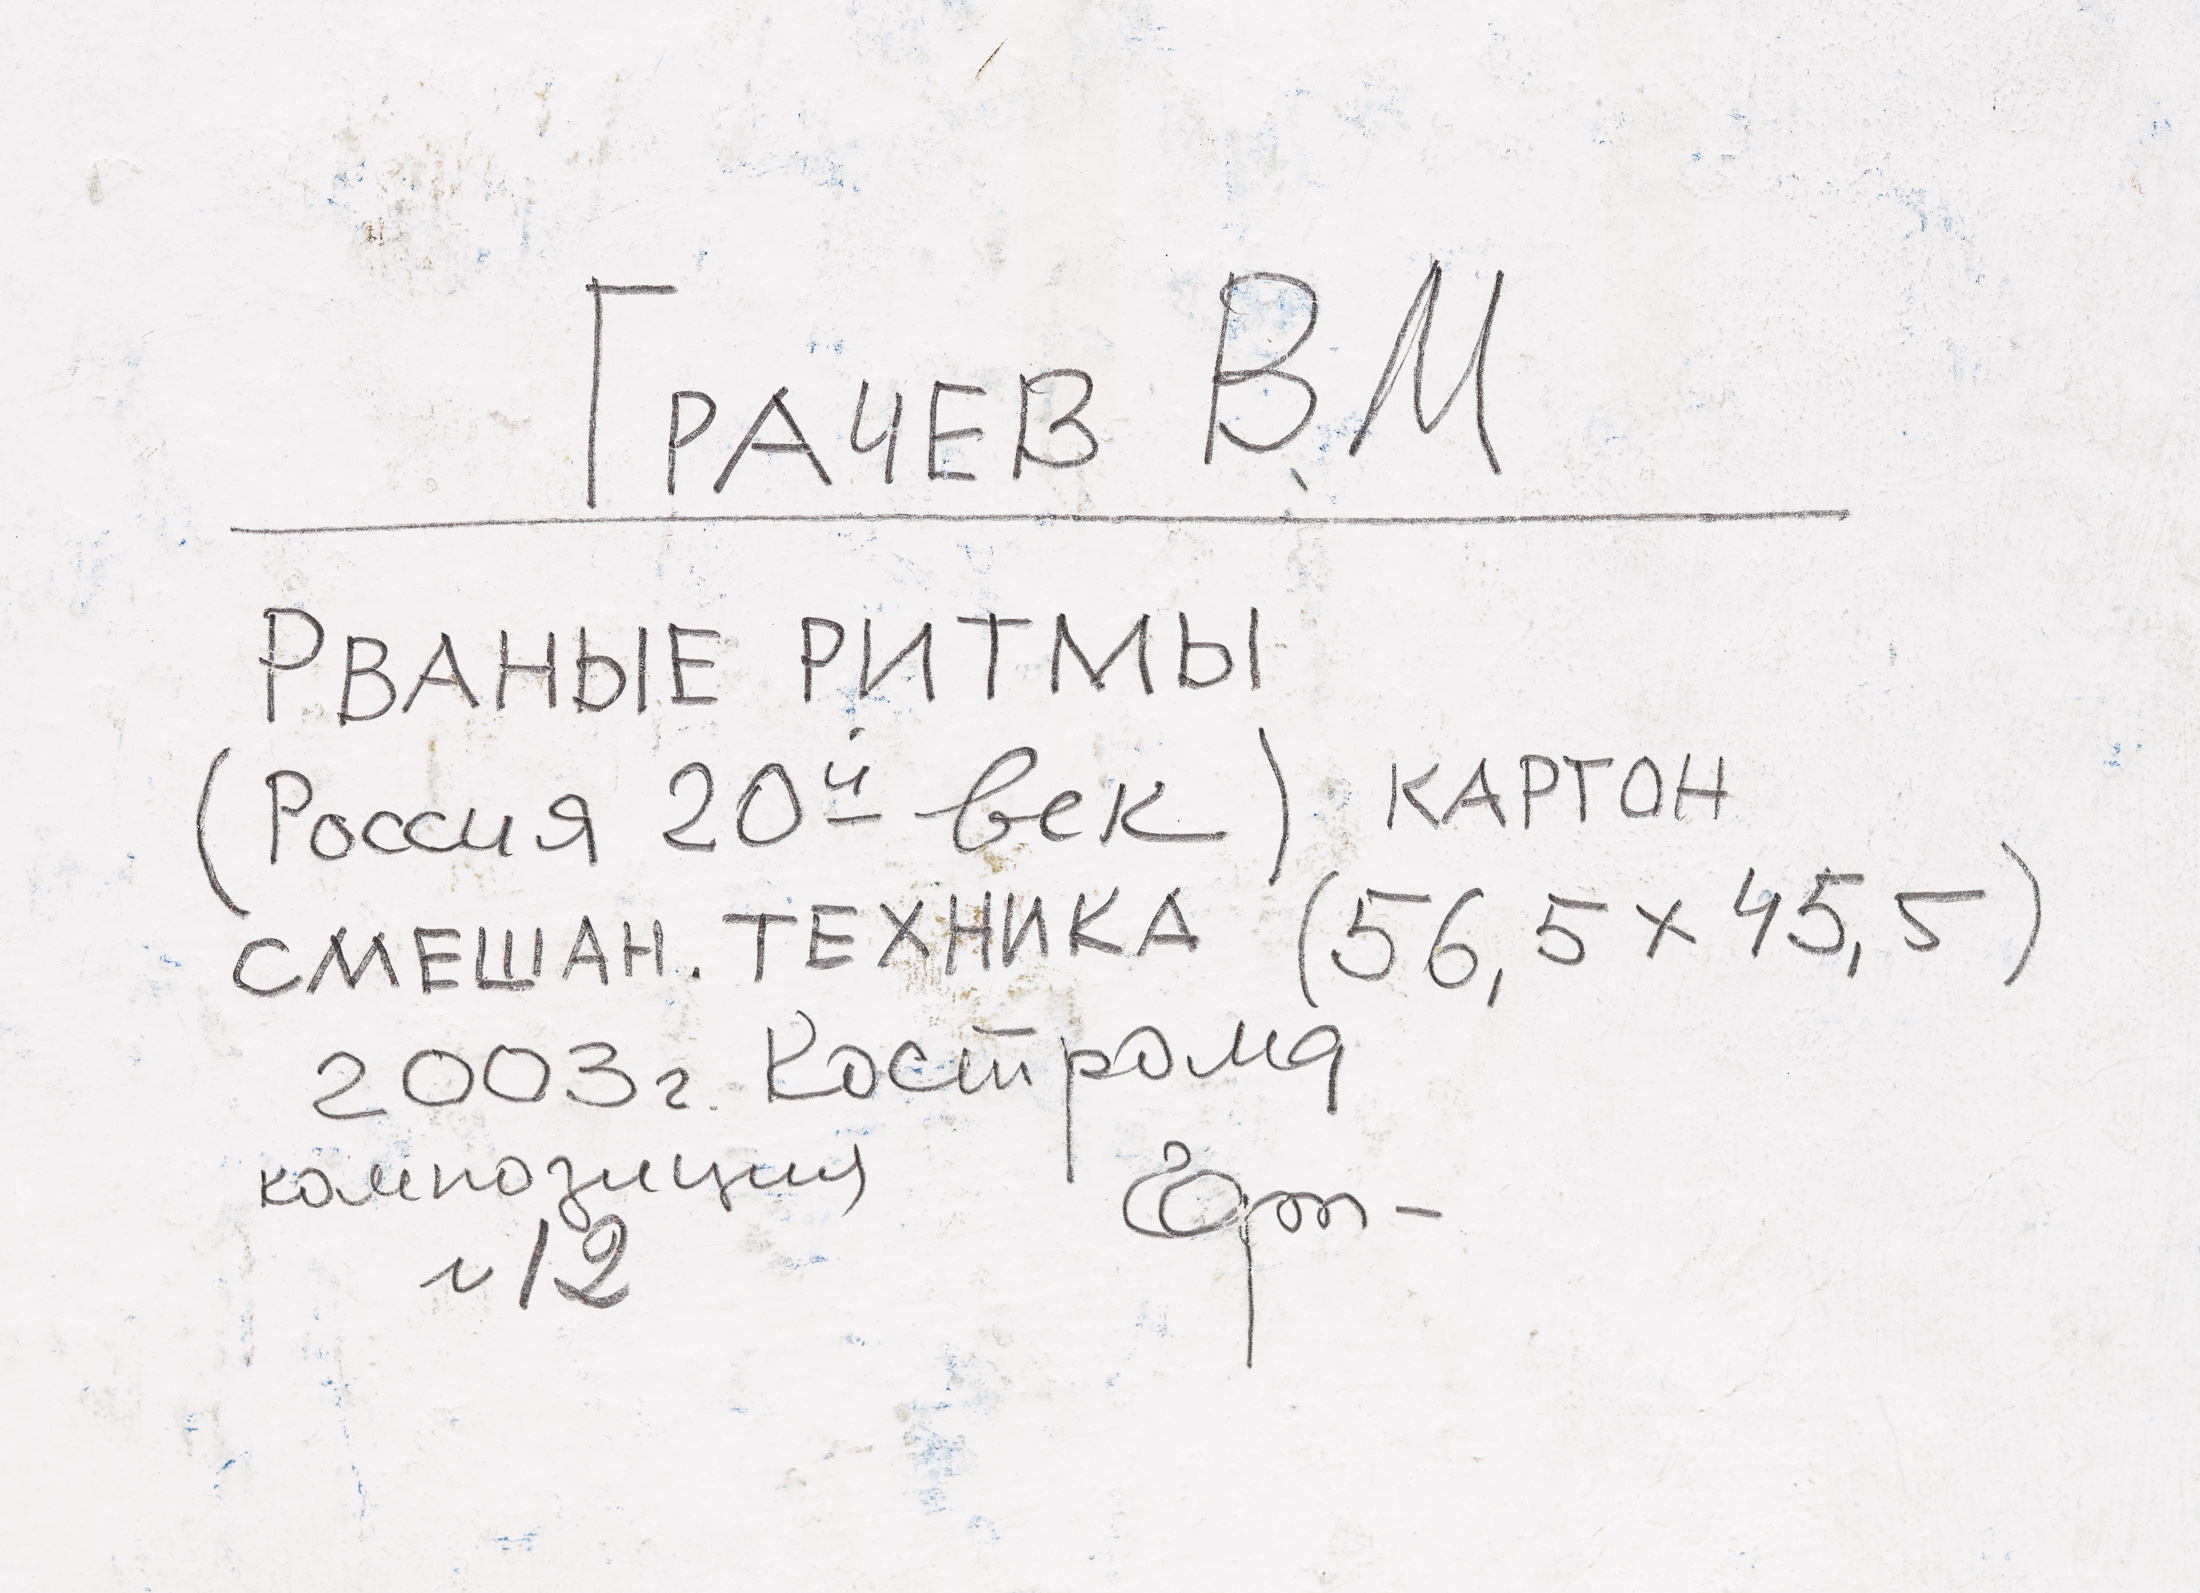 Грачев В.М
Рваные ритмы
(Россия 20й век) картон
смешан. техника (56,5×45,5)
2003г. Кострома
композиция
н 12